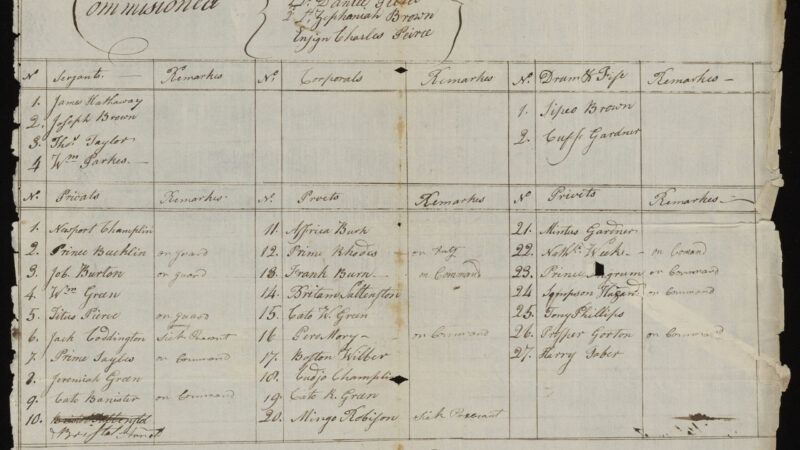 Commissioned
Lt. Daniel
2 Lt. Zephaniah Brown
Ensign Charles Peirce
No Serjants Remarkes No. Corporals Remarkes No. Drum & Fife Remarkes
1. James Hathaway 1. Sipeo Brown
2. Joseph Brown 2. Cuff Gardner
3. Thos. Taylor
4 Wm Parkes
No. Privats Remarkes No. Privets Remarkes No Privets Remarkes
1. Newport Champlin 11. Affrica Burk 21. Mintus Gardner
2. Prince Bucklin on guard 12. Prime Rhodes on 22. Nathl. Weeks on Comand
3. Job. Burton on guard 13. Frank Burn on Command 23. Prince on Command
4. Wm Green 14. Britam Saltenston 24. Hazard on Command
5. Titas Pierce on guard 15. Cato W. Green 25. Tony Phillips
6. Jack Coddington Sick Presant 16 Pero Mory on Command 26. Prosper Gorton on Command
7. Prime Sayles on Command 17. Boston Wilber 27. Harry
8. Jeremiah Green 18. Cudjo Champlin
9. Cato Banister on Command 19. Cato K. Green
10. 20. Mingo Robison Sick Presant
Bristol